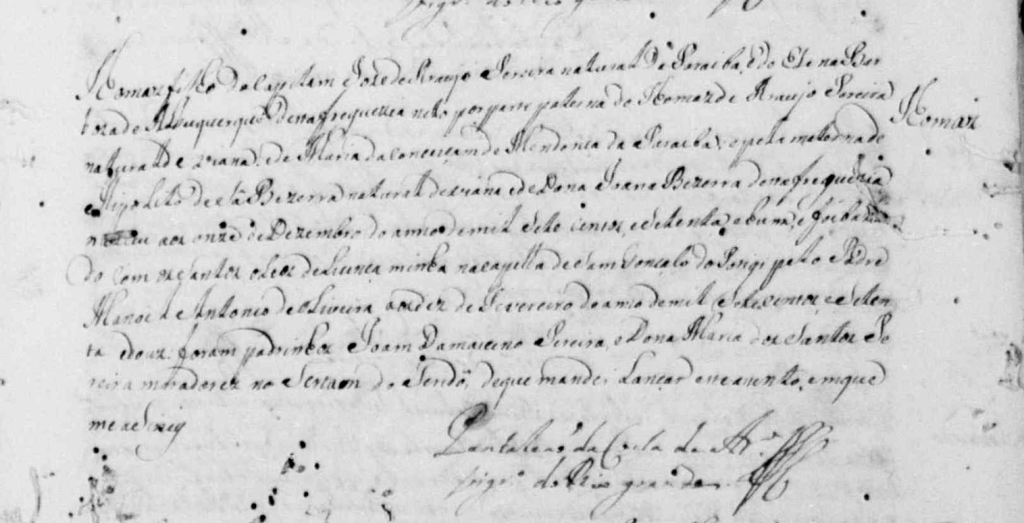 Vigrº do Rio grande
Thomaz filho do Capitam Joze de Araujo Pereira natural da Paraiba, e de Elena Bar
boza de Albuquerque desta freguezia neto por parte paterna de Thomaz de Araujo Pereira
natural de Viana e de Maria da Conceiçam de Mendonça da Paraiba, e pela materna de
Hypolito de Sá Bezerra natural de Viana e de Dona Joana Bezerra desta freguezia
naceu aos onze de Dezembro do anno de mil Sete centos, e Setenta, e hum, e foi batiza
do com os Santos oleos de licença minha na capella de Sam Gonçalo do Potigi pelo Padre
Manoel Antonio de Oliveira aos dez de Fevereiro do anno de mil Sete centos e Seten
ta e dous; foram padrinhos Joam Damasceno Pereira, e Dona Maria dos Santos Pe
reira moradores no Sertam do Seridó, de que mandei Lançar este acento, em que
me asiney
Pantaleaõ da Costa de Arº
Vigrº do Rio grande
Thomaz